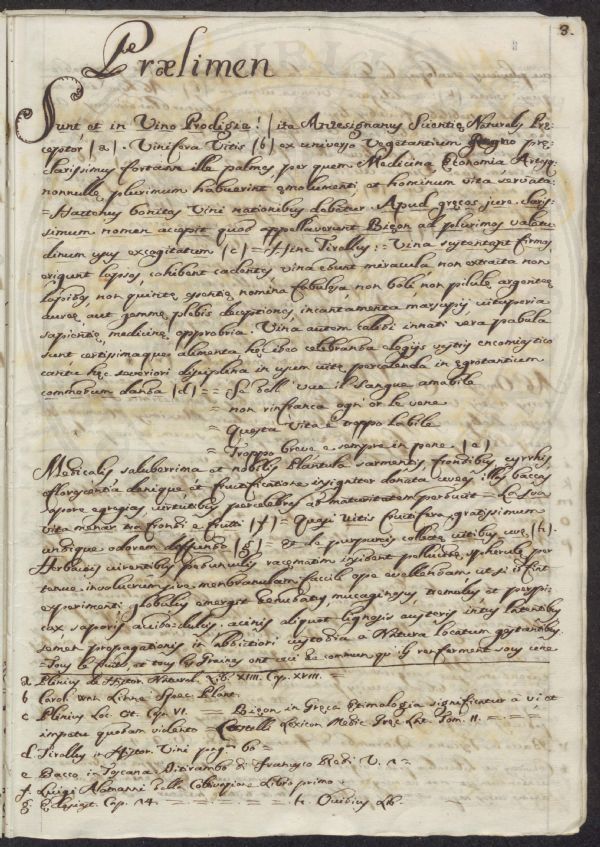 3.
Prælimen
Sunt et in Vino Prodigia! (ita Naturalis Prę
ceptor (a). Vinifera Vitis (b) ex universo Vegetantium Regno prę
clarissimus palmes, per quem Medicina Economia
nonnullę plurimum habuerint emolumenti, et hominum vita servata
= Hactenus bonitas Vini nationibus debetur. Apud gręcos jure claris
simum nomen accepit quod appellaverant Bieon ad plurimos valetu
dinum usus excogitatum (c) = Hinc Tirellus: = Vina sustentant firmos
erigunt lapsos, cohibent cadentes, vina edunt miracula non extraita non
lapides, non quintę essentię nomina fabulosa, non boli, non pilulę argenteę
aureę aut gemmę, plebis deceptiones, incantamenta marsupij, vituperia
sapientię, medicinę opprobria. Vina autem calidi innati vera pabula
sunt certissimaque alimenta hęc ideo celebranda elogijs encomiastico
cantu hęc severiori disciplina in usum vitę percolenda in ęgrotantium
commodum danda (d) = = Se dell' uve il sangue amabile
= non rinfranca ogn' or le vene
= Questa Vita è troppo labile
= Troppo breve e sempre in pene (e)
Medicalis saluberrima et nobilis Plantula sarmentis, frondibus cyrrhis,
efflorescentia denique et fructificatione insigniter donata uveas illas baccas
sapore egregias, virtutibus percelebres ad maturitatem perducit = La sua
vita menar tra frondi e frutti (f) = Quasi Vitis fructifera gratissimum
undique odorem diffundo (g) = Et de purpureis collectę vitibus uvę (h).
Herbaceis virentibus pedunculis racematim insident pellucidę sphęrulę per
tenue involucrum sive membranulam facili ope evellendam, ut si id fint
experimenti globulus emergit denudatus, mucaginosus, tremulus et perspi
cax saporis acido-dulcis, acinis aliquot lignosis austeris intus latentibus
semen propagationis et custodia a Natura locatum gestantibus.
= Tous les fruits, et tous les Graines ont ceci de commun, qu'ils renferment sous une
a Plinius de Histor. Natural. Lib. XIIII. Cap. XVIII. =
b Carol. von Linné Spec. Plant.
c Plinius Loc. Cit. Cap. VI. = Bieon in Gręca Etimologia significatur a vi et
impetu quodam violento = Castelli Lexicon Medic. Gręc. Lat. Tom. II. = = =
d Tirellus in Histor. Vini pag. 60 =
e Bacco in Toscana Ditirambo di Francesco Redi V. 1 =
f. Luigi Alamanni della Coltivazione Libro primo.
g Eclesiast. Cap. 24. = = = = h. Ovidius Lib.